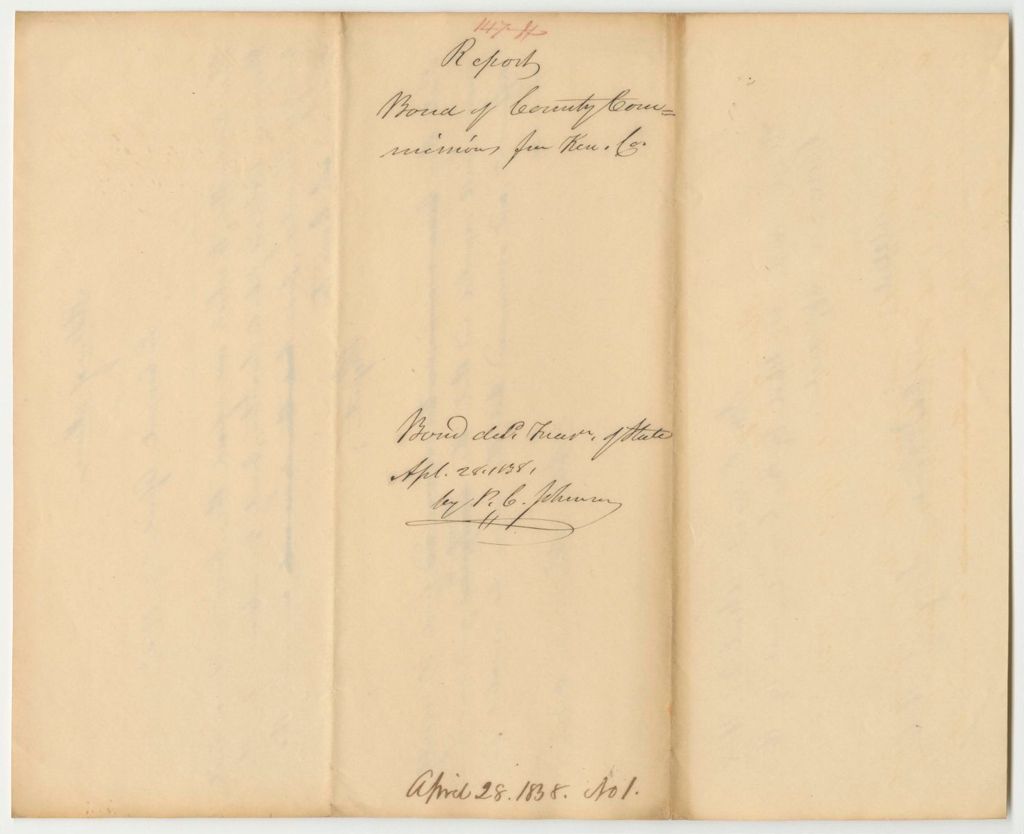 147
Report
Bond of County Com=
missions for Ken. Co.
Bond deld. Treasr. of State
Apl. 28. 1838,
by P. C. Johnson
April 28. 1838. No 1.